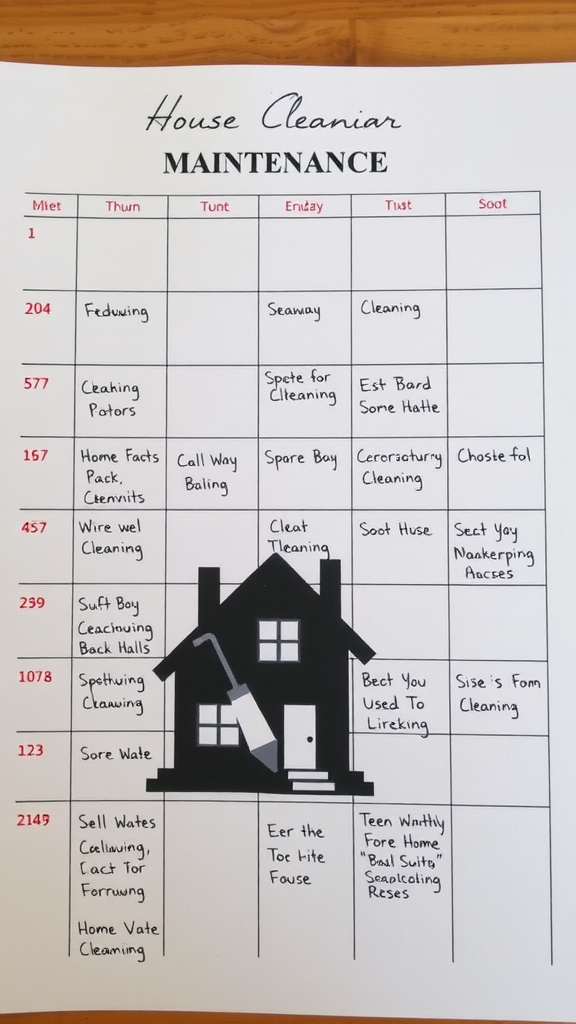 House Cleaniar
MAINTENANCE
Mlet Thurn Tunt Enday Tust Soot
1
204 Feduwing Seaway Cleaning
577 Ceahing Potors Spete for Clteaning Est Bard Some Hatte
167 Home Facts Pack, Ctemnits Call Way Baling Spore Bay Cerorsoturry Cleaning Choste fol
457 Wire wel Cleaning Cleat Tleaning Soot Huse Sect Yay Naakerping Aacses
239 Suft Boy Ceachouing Back Halls
1078 Spethuing Ctauwing Bect You Used To Lireking Sise is Fom Cleaning
123 Sore Wate
2149 Sell Wates Ceeluwing, Cact For Forruung Eer the Toc Hite Fouse Teen Wnithly Fore Home "Bual Suite," Seaplcoling Reses
Home Vate Cleaming